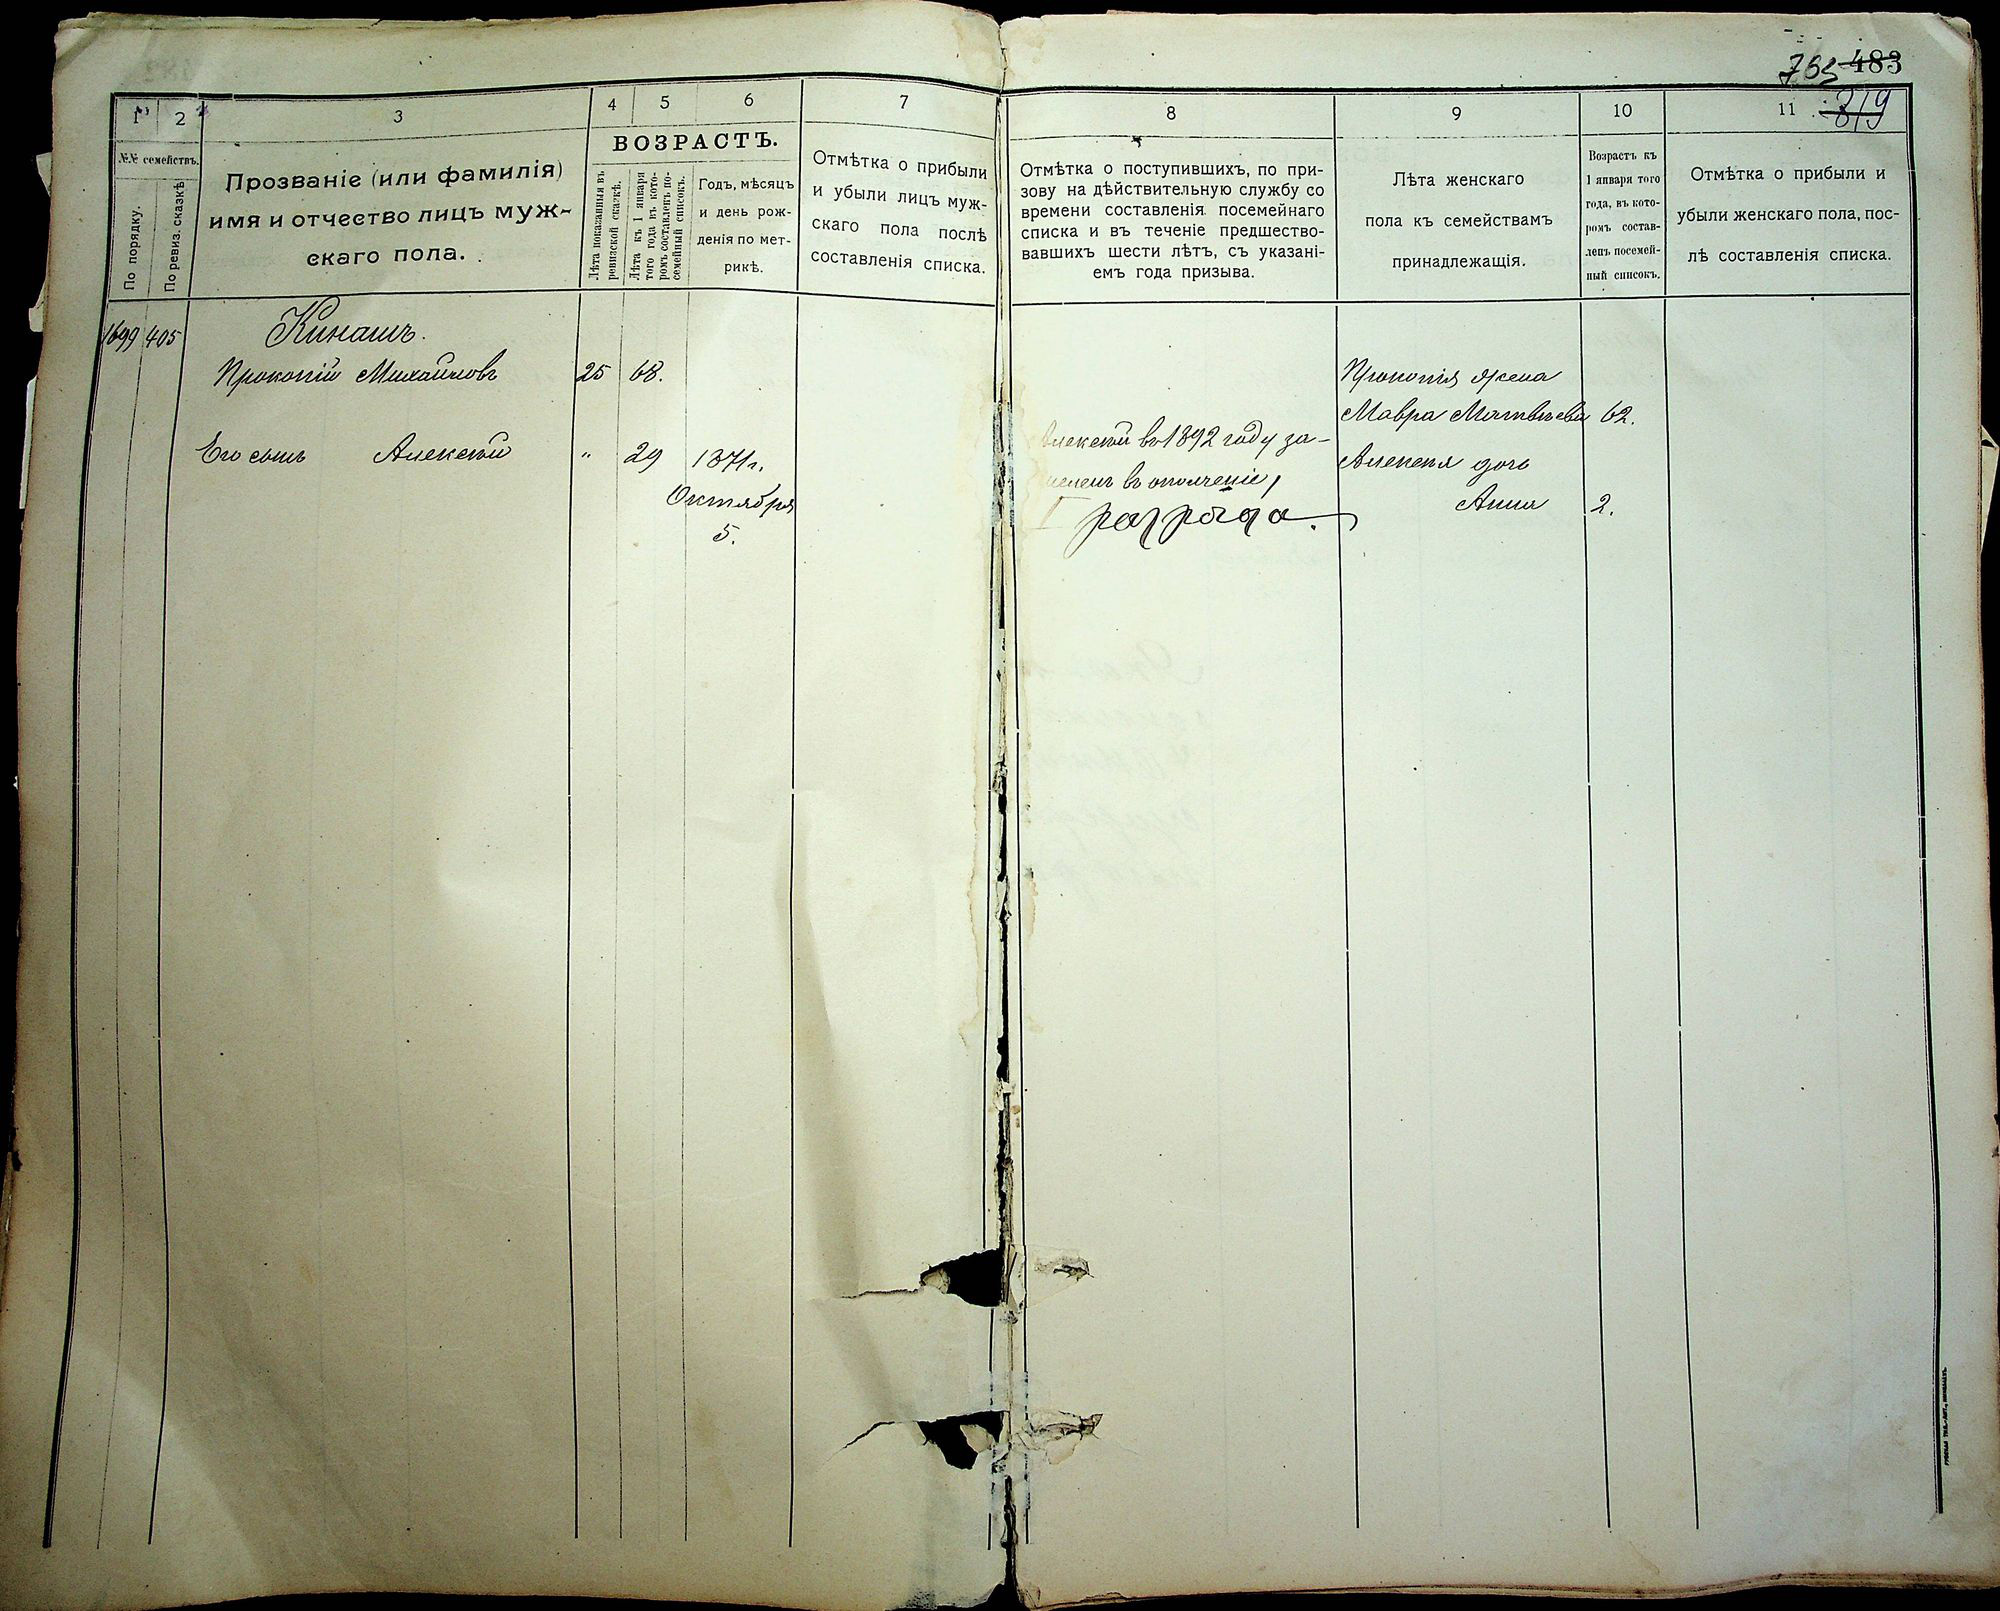 765 483
819
1 2 3 4 5 6 7 8 9 10 11
№№ семействъ.
По порядку.
По ревиз. сказкѣ
Прозваніе (или фамилія)
имя и отчество лицъ муж-
скаго пола.
ВОЗРАСТЪ.
Лѣта показанныя въ
ревизской сказкѣ.
Лѣта къ 1 января
того года въ кото-
ромъ составленъ по-
семейный списокъ.
Годъ, мѣсяцъ
и день рож-
денія по мет-
рикѣ.
Отмѣтка о прибыли
и убыли лицъ муж-
скаго пола послѣ
составленія списка.
Отмѣтка о поступившихъ, по при-
зову на дѣйствительную службу со
времени составленія посемейнаго
списка и въ теченіе предшество-
вавшихъ шести лѣтъ, съ указані-
емъ года призыва.
Лѣта женскаго
пола къ семействамъ
принадлежащія.
Возрастъ къ
1 января того
года, въ кото-
ромъ состав-
ленъ посемей-
ный списокъ.
Отмѣтка о прибыли и
убыли женскаго пола, пос-
лѣ составленія списка.
1699 405 Кинашъ.
Прокопій Михайловъ 25 68.
Его сынъ Алексѣй " 29 1871 г.
Октября
5.
Алексѣй въ 1892 году за-
численъ въ ополченіе,
I разряда.
Прокопія жена
Мавра Матвѣева 62.
Алексѣя дочь
Анна 2.